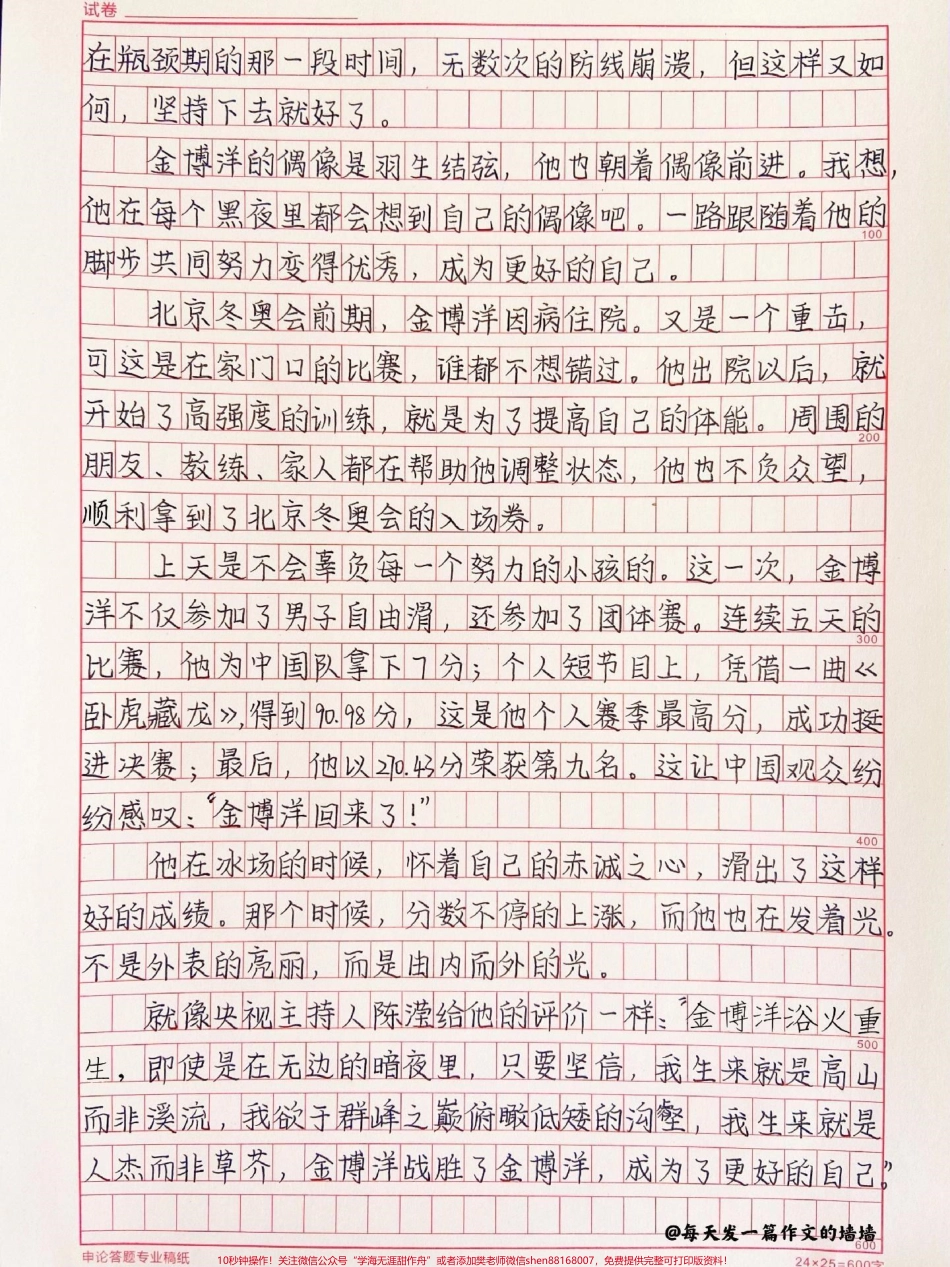 试卷
在瓶颈期的那一段时间，无数次的防线崩溃，但这样又如
何，坚持下去就好了。
金博洋的偶像是羽生结弦，他也朝着偶像前进。我想，
他在每个黑夜里都会想到自己的偶像吧。一路跟随着他的
100
脚步共同努力变得优秀，成为更好的自己。
北京冬奥会前期，金博洋因病住院。又是一个重击，
可这是在家门口的比赛，谁都不想错过。他出院以后，就
开始了高强度的训练，就是为了提高自己的体能。周围的
200
朋友、教练、家人都在帮助他调整状态，他也不负众望，
顺利拿到了北京冬奥会的入场券。
上天是不会辜负每一个努力的小孩的。这一次，金博
洋不仅参加了男子自由滑，还参加了团体赛。连续五天的
300
比赛，他为中国队拿下7分；个人短节目上，凭借一曲《
卧虎藏龙》，得到90.98分，这是他个人赛季最高分，成功挺
进决赛；最后，他以270.43分荣获第九名。这让中国观众纷
纷感叹：“金博洋回来了！”
400
他在冰场的时候，怀着自己的赤诚之心，滑出了这样
好的成绩。那个时候，分数不停的上涨，而他也在发着光。
不是外表的亮丽，而是由内而外的光。
就像央视主持人陈滢给他的评价一样：“金博洋浴火重
500
生，即使是在无边的暗夜里，只要坚信，我生来就是高山
而非溪流，我欲于群峰之巅俯瞰低矮的沟壑，我生来就是
人杰而非草芥，金博洋战胜了金博洋，成为了更好的自己。”
@每天发一篇作文的墙墙
600
申论答题专业稿纸
10秒钟操作！关注微信公众号“学海无涯甜作舟”或者添加樊老师微信shen88168007，免费提供完整可打印版资料！
24×25=600字